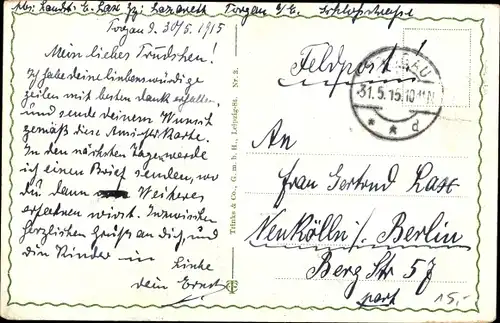 Torgau d. 30/5. 1915
Mein liebes Trudchen!
Ich habe deine liebenswürdige
Zeilen mit besten dank erhalten,
und sende deinem Wunsch
gemäß diese Ansichtskarte.
In den nächsten Tagen werde
ich einen Brief senden, wo
du dann Weiteres
erfahren wirst. Inzwischen
herzlichen Gruß an dich, und
die Kinder in Liebe
dein Ernst
Trinks & Co., G. m. b. H., Leipzig-St. Nr. 3.
Feldpost!
31.5.15. 10-11 N.
* * d
An
Frau Gertrud Lax
Neukölln / Berlin
Berg Str 57
part
15,-